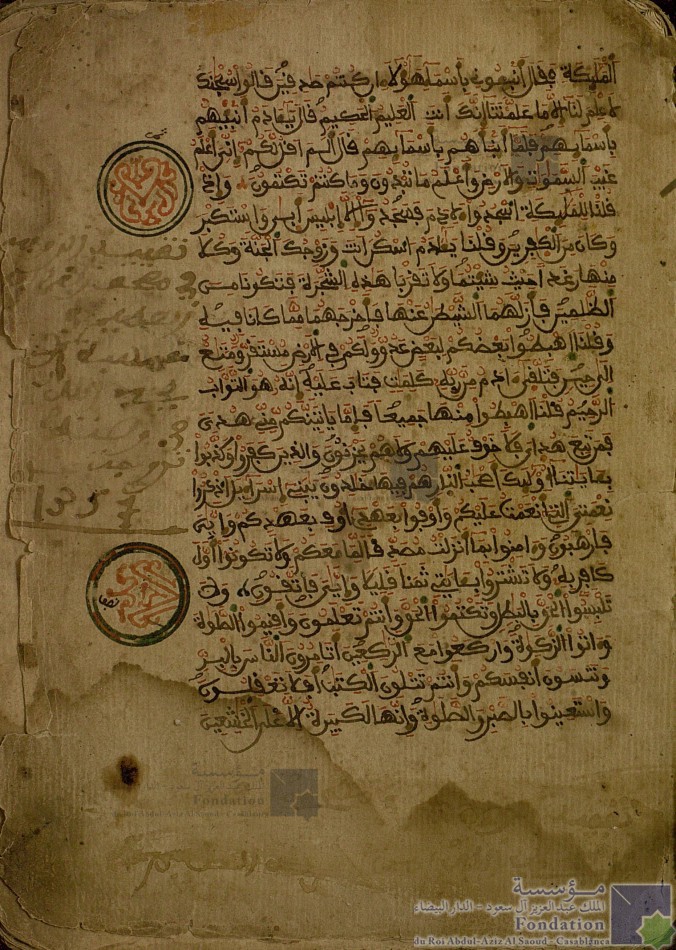 الملئكة فقال أنبئوني بأسماء هؤلاء ان كنتم صدقين قالوا سبحنك
لا علم لنا إلا ما علمتنا إنك أنت العليم الحكيم قال يئادم أنبئهم
بأسمائهم فلما أنبأهم بأسمائهم قال ألم أقل لكم إني أعلم
غيب السموات والارض وأعلم ما تبدون وما كنتم تكتمون وإذ
قلنا للملئكة اسجدوا لادم فسجدوا إلا إبليس أبى واستكبر
وكان من الكفرين وقلنا يئادم اسكن انت وزوجك الجنة وكلا
منها رغدا حيث شئتما ولا تقربا هذه الشجرة فتكونا من
الظلمين فأزلهما الشيطن عنها فأخرجهما مما كانا فيه
وقلنا اهبطوا بعضكم لبعض عدو ولكم في الارض مستقر ومتع
الى حين فتلقى ءادم من ربه كلمات فتاب عليه إنه هو التواب
الرحيم قلنا اهبطوا منها جميعا فإما ياتينكم مني هدى
فمن تبع هداي فلا خوف عليهم ولا هم يحزنون والذين كفروا وكذبوا
بئاياتنا أوليك أصحب النار هم فيها خلدون يبني إسراءيل اذكروا
نعمتي التي أنعمت عليكم وأوفوا بعهدي أوف بعهدكم وإيي
فارهبون وءامنوا بما أنزلت مصدقا لما معكم ولا تكونوا أول
كافر به ولا تشتروا بئايتي ثمنا قليلا وإيي فاتقون ولا
تلبسوا الحق بالبطل وتكتموا الحق وأنتم تعلمون وأقيموا الصلوة
وءاتوا الزكوة واركعوا مع الركعين أتامرون الناس بالبر
وتنسون أنفسكم وأنتم تتلون الكتب أفلا تعقلون
واستعينوا بالصبر والصلوة وإنها لكبيرة إلا على الخشعين
1357
مؤسسة
Fondation
du Roi Abdul-Aziz Al Saoud - Casablanca
مؤسسة
الملك عبد العزيز آل سعود - الدار البيضاء
Fondation
du Roi Abdul-Aziz Al Saoud - Casablanca